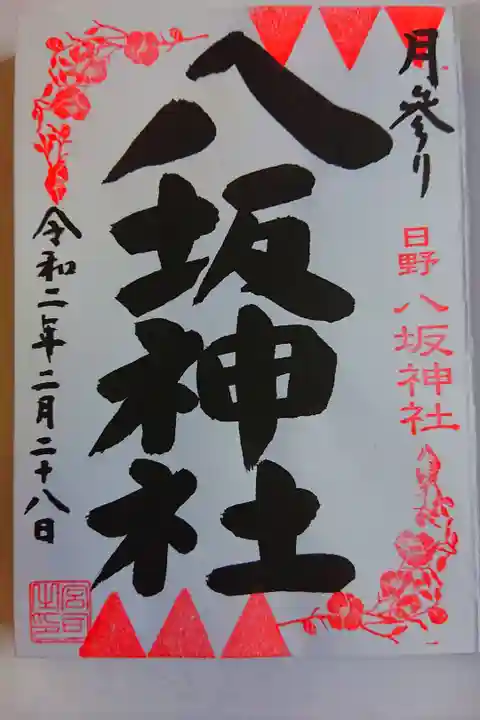 月参り
日野 八坂神社
八坂神社
令和二年二月二十八日
宮司之印